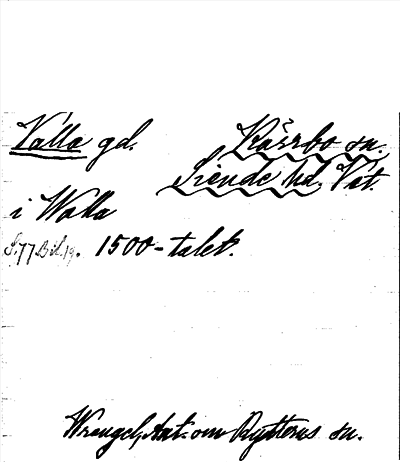 Valla gd. Kärrbo sn.
Siende hd. Vst.
i Walla
S. 77 Bil. 19. 1500-talet.
Wrangel, Ant. om Rytterns sn.